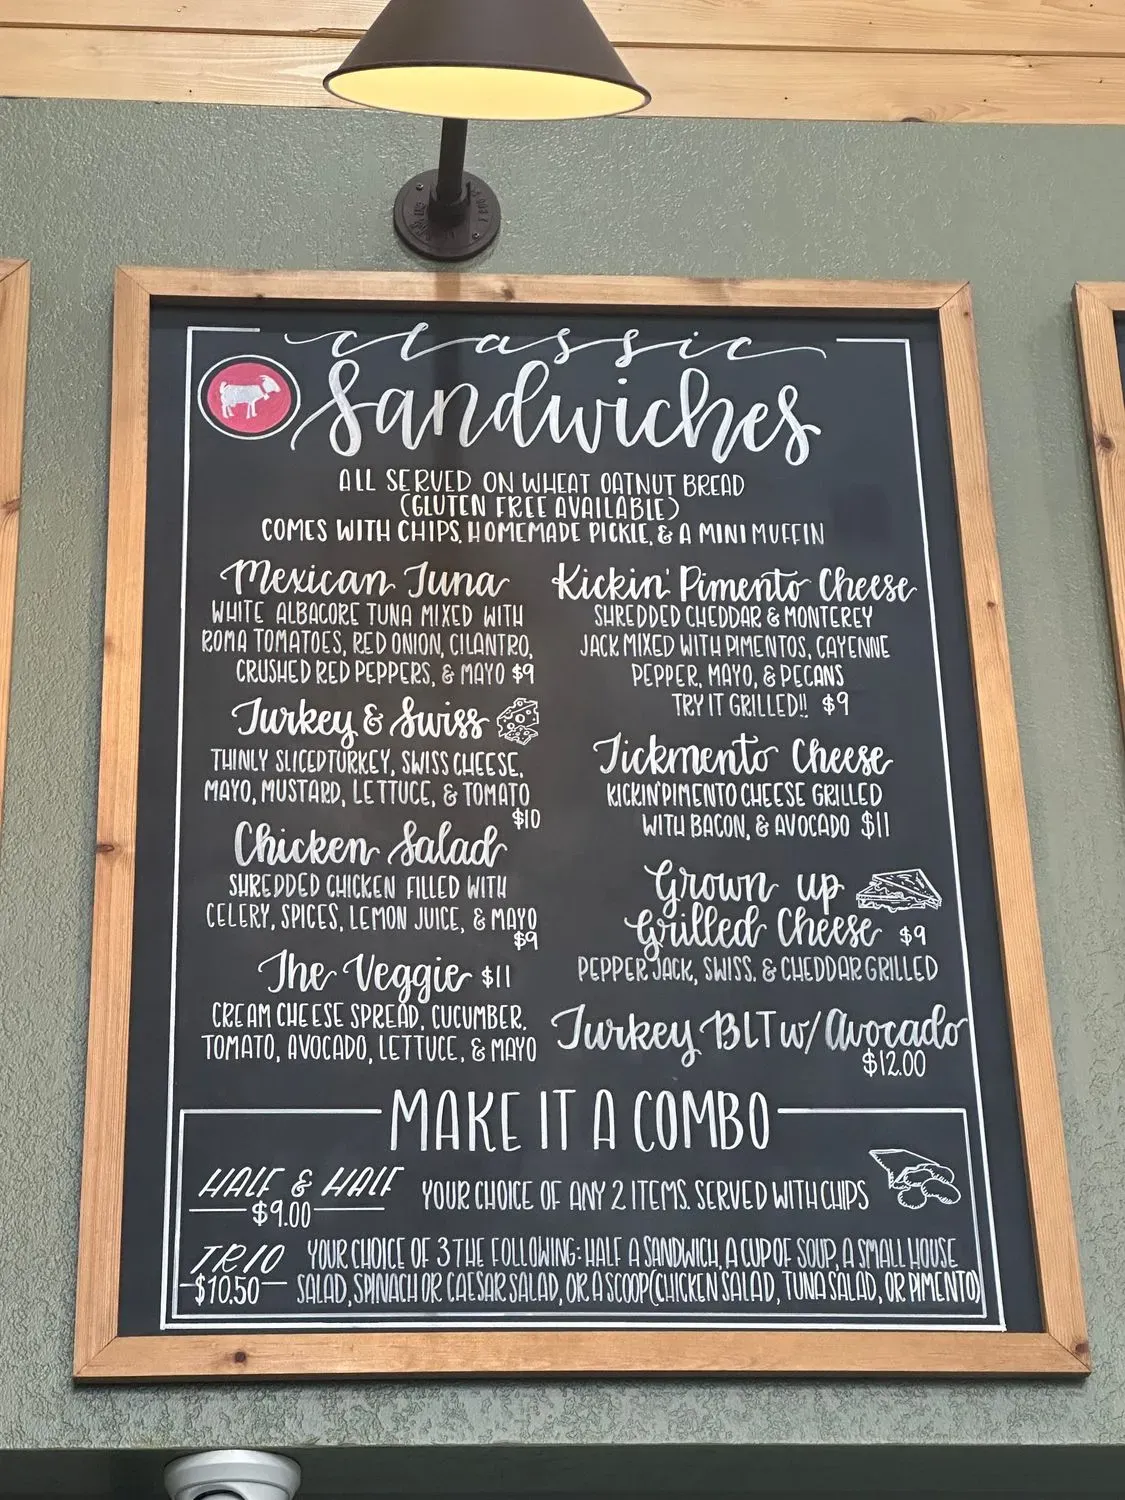 classic
Sandwiches
ALL SERVED ON WHEAT OATNUT BREAD
(GLUTEN FREE AVAILABLE)
COMES WITH CHIPS, HOMEMADE PICKLE, & A MINI MUFFIN
Mexican Tuna
WHITE ALBACORE TUNA MIXED WITH
ROMA TOMATOES, RED ONION, CILANTRO,
CRUSHED RED PEPPERS, & MAYO $9
Turkey & Swiss
THINLY SLICED TURKEY, SWISS CHEESE,
MAYO, MUSTARD, LETTUCE, & TOMATO
$10
Chicken Salad
SHREDDED CHICKEN FILLED WITH
CELERY, SPICES, LEMON JUICE, & MAYO
$9
The Veggie $11
CREAM CHEESE SPREAD, CUCUMBER,
TOMATO, AVOCADO, LETTUCE, & MAYO
Kickin' Pimento Cheese
SHREDDED CHEDDAR & MONTEREY
JACK MIXED WITH PIMENTOS, CAYENNE
PEPPER, MAYO, & PECANS
TRY IT GRILLED!! $9
Tickmento Cheese
KICKIN' PIMENTO CHEESE GRILLED
WITH BACON, & AVOCADO $11
Grown up
Grilled Cheese $9
PEPPER JACK, SWISS, & CHEDDAR GRILLED
Turkey BLT w/ Avocado
$12.00
MAKE IT A COMBO
HALF & HALF
$9.00
YOUR CHOICE OF ANY 2 ITEMS. SERVED WITH CHIPS
TRIO
$10.50
YOUR CHOICE OF 3 THE FOLLOWING: HALF A SANDWICH, A CUP OF SOUP, A SMALL HOUSE
SALAD, SPINACH OR CAESAR SALAD, OR A SCOOP (CHICKEN SALAD, TUNA SALAD, OR PIMENTO)